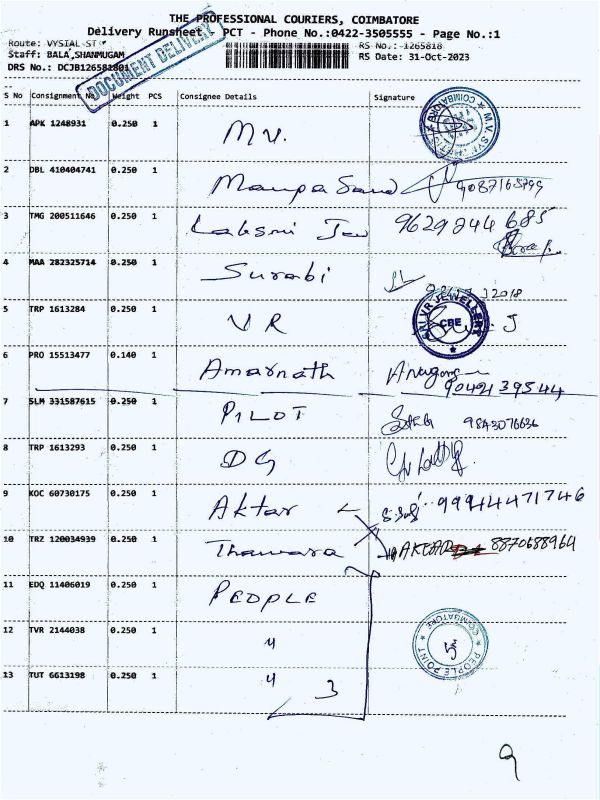 THE PROFESSIONAL COURIERS, COIMBATORE
Delivery Runsheet PCT - Phone No.:0422-3505555 - Page No.:1
Route: VYSIAL ST RS No.: 1265818
Staff: BALA SHANMUGAM RS Date: 31-Oct-2023
DRS No.: DCJB126581801
DOCUMENT DELIVERY
S No Consignment No Weight PCS Consignee Details Signature
1 APK 1248931 0.250 1 M.V.
2 DBL 410404741 0.250 1
3 TMG 200511646 0.250 1 9629244685
4 MAA 282325714 0.250 1 Surabi
5 TRP 1613284 0.250 1 V R J
SRI VR JEWELLERY CBE
6 PRO 15513477 0.140 1 Amarnath
9042139544
7 SLM 331587615 0.250 1 PILOT 9843076636
8 TRP 1613293 0.250 1 DG
9 KOC 60730175 0.250 1 Aktar 9994471746
10 TRZ 120034939 0.250 1 Thawara 8870688964
11 EDQ 11406019 0.250 1 PEOPLE
12 TVR 2144038 0.250 1 4
PEOPLE POINT COIMBATORE
13 TUT 6613198 0.250 1 4 3
9